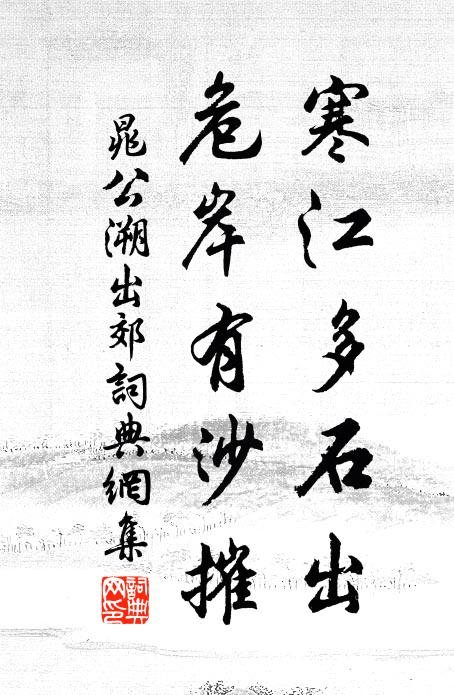 寒江多石出
危岸有沙摧
晁公溯出郊詞典網集
詞典网印